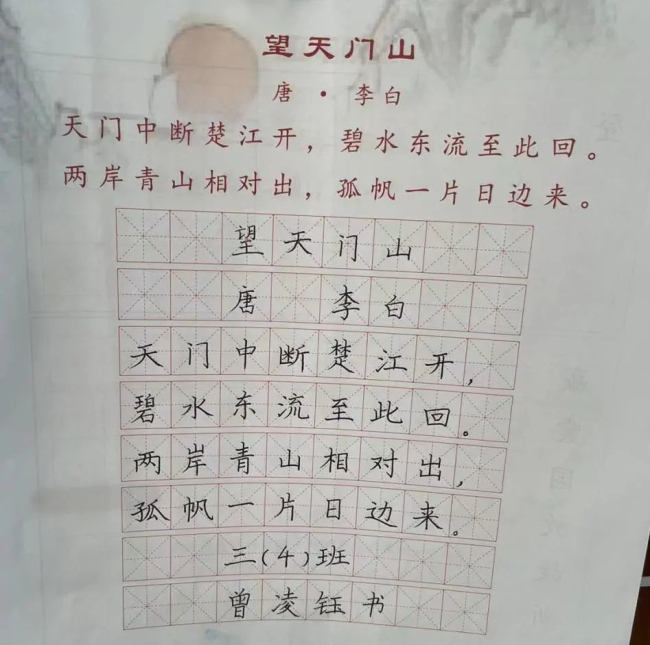 望天门山
唐·李白
天门中断楚江开，碧水东流至此回。
两岸青山相对出，孤帆一片日边来。
望天门山
唐 李白
天门中断楚江开，
碧水东流至此回。
两岸青山相对出，
孤帆一片日边来。
三(4)班
曾凌钰书